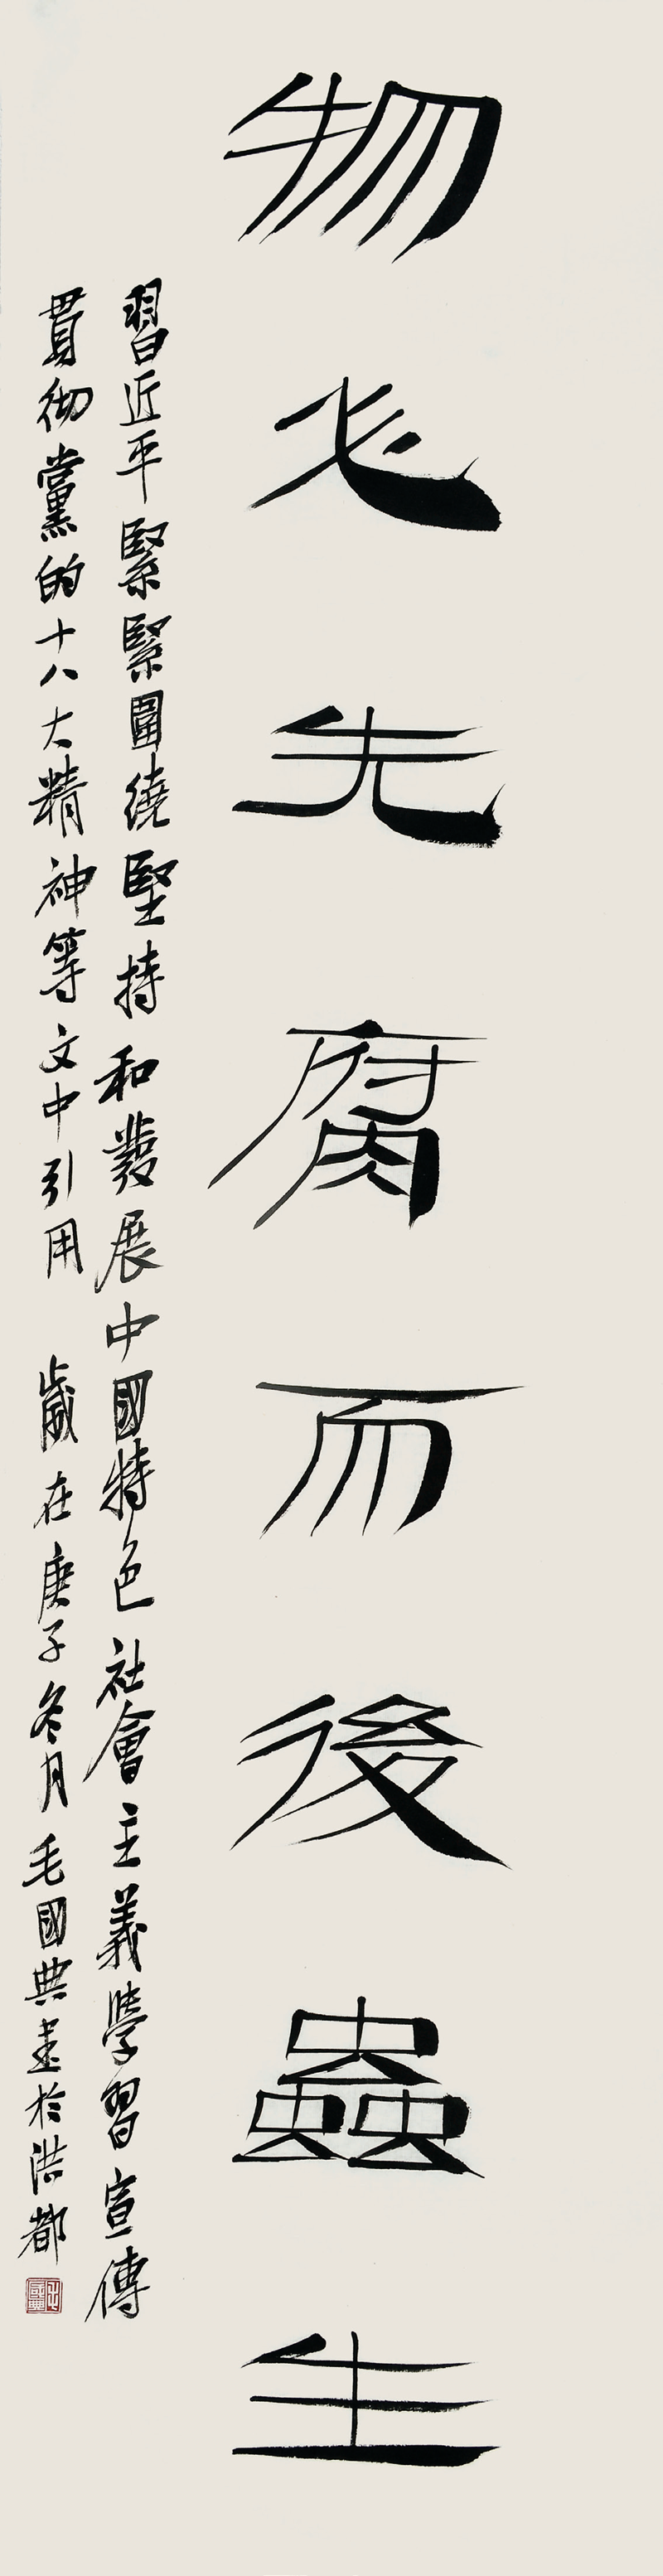 物必先腐而後蟲生
習近平緊緊圍繞堅持和發展中國特色社會主義學習宣傳
貫彻黨的十八大精神等文中引用 歲在庚子冬月毛國典書於洪都